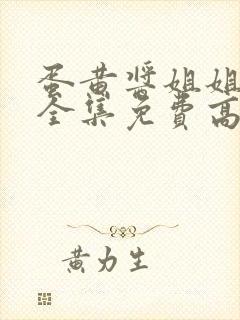 蛋黄酱姐姐
全集免费高
黄力生